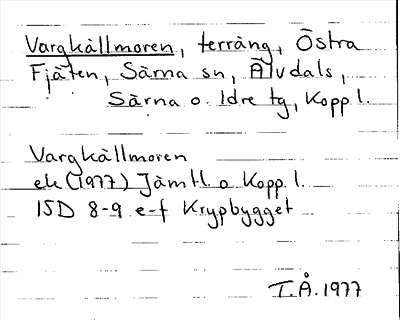 Vargkällmoren, terräng, Östra
Fjäten, Särna sn, Älvdals,
Särna o. Idre tg, Kopp l.
Vargkällmoren
ek (1977) Jämtl o Kopp. l.
15D 8-9 e-f Krypbygget
T.Å. 1977